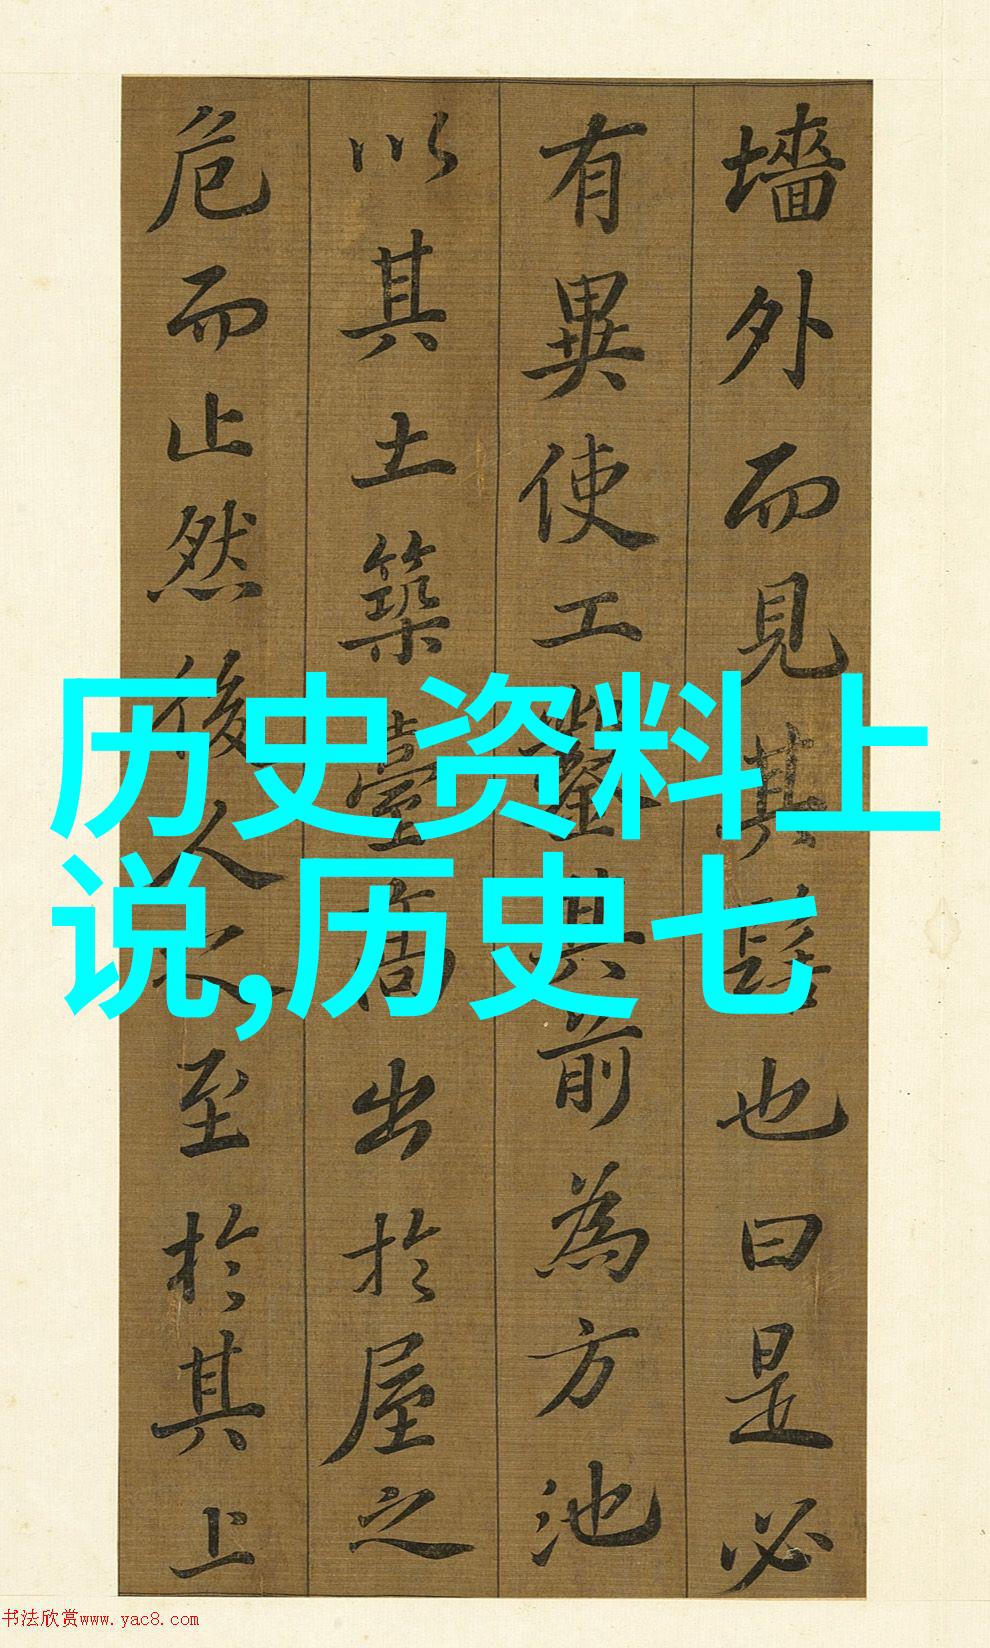 墻外而見其髻也曰是必
有異使工鑿其前為方池
以其土築臺高出於屋之
危而止然後人之至於其上
历史资料上
说,历史七
书法欣赏www.yac8.com